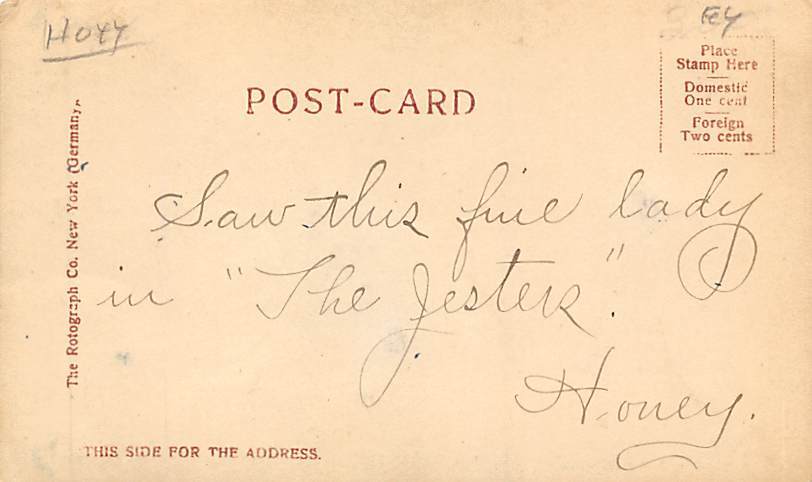 HOYY
EY
Place
Stamp Here
Domestic
One cent
Foreign
Two cents
POST-CARD
The Rotograph Co. New York (Germany.)
Saw this fine lady
in "The Jesters".
Honey.
THIS SIDE FOR THE ADDRESS.